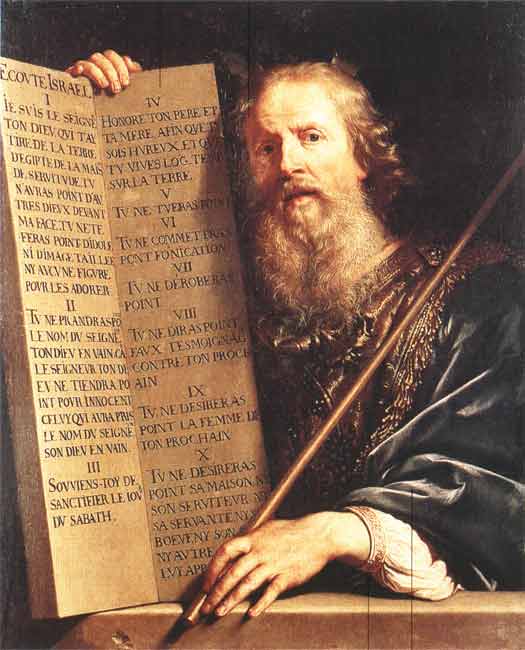 ECOVTE ISRAEL
I
IE SVIS LE SEIGNE
TON DIEV QVI T'AY
TIRE DE LA TERRE
D'EGIPTE DE LA MAIS
DE SERVITVDE. TV
N'AVRAS POINT D'AV
TRES DIEVX DEVANT
MA FACE. TV NE TE
FERAS POINT D'IDOLE
NI D'IMAGE TAILLEE
NY AVCVNE FIGVRE
POVR LES ADORER
II
TV NE PRANDRAS PO
LE NOM DV SEIGNE
TON DIEV EN VAIN CA
LE SEIGNEVR TON DI
EV NE TIENDRA PO
INT POVR INNOCENT
CELVY QVI AVRA PRIS
LE NOM DV SEIGNE
SON DIEV EN VAIN.
III
SOVVIENS-TOY DE
SANCTIFIER LE IOV
DV SABATH.
IV
HONORE TON PERE ET
TA MERE, AFIN QVE T
SOIS HVREVX, ET QV
TV VIVES LOG. TE
SVR LA TERRE.
V
TV NE TVERAS POINT
VI
TV NE COMMETTRAS
POINT FONICATION
VII
TV NE DEROBERAS
POINT
VIII
TV NE DIRAS POINT
FAVX TESMOIGNAG
CONTRE TON PROCH
AIN
IX
TV NE DESIRERAS
POINT LA FEMME DE
TON PROCHAIN
X
TV NE DESIRERAS
POINT SA MAISON, N
SON SERVITEVR N
SA SERVANTE, NY
BOEVF, NY SON
NY AVTRE
LVY APP